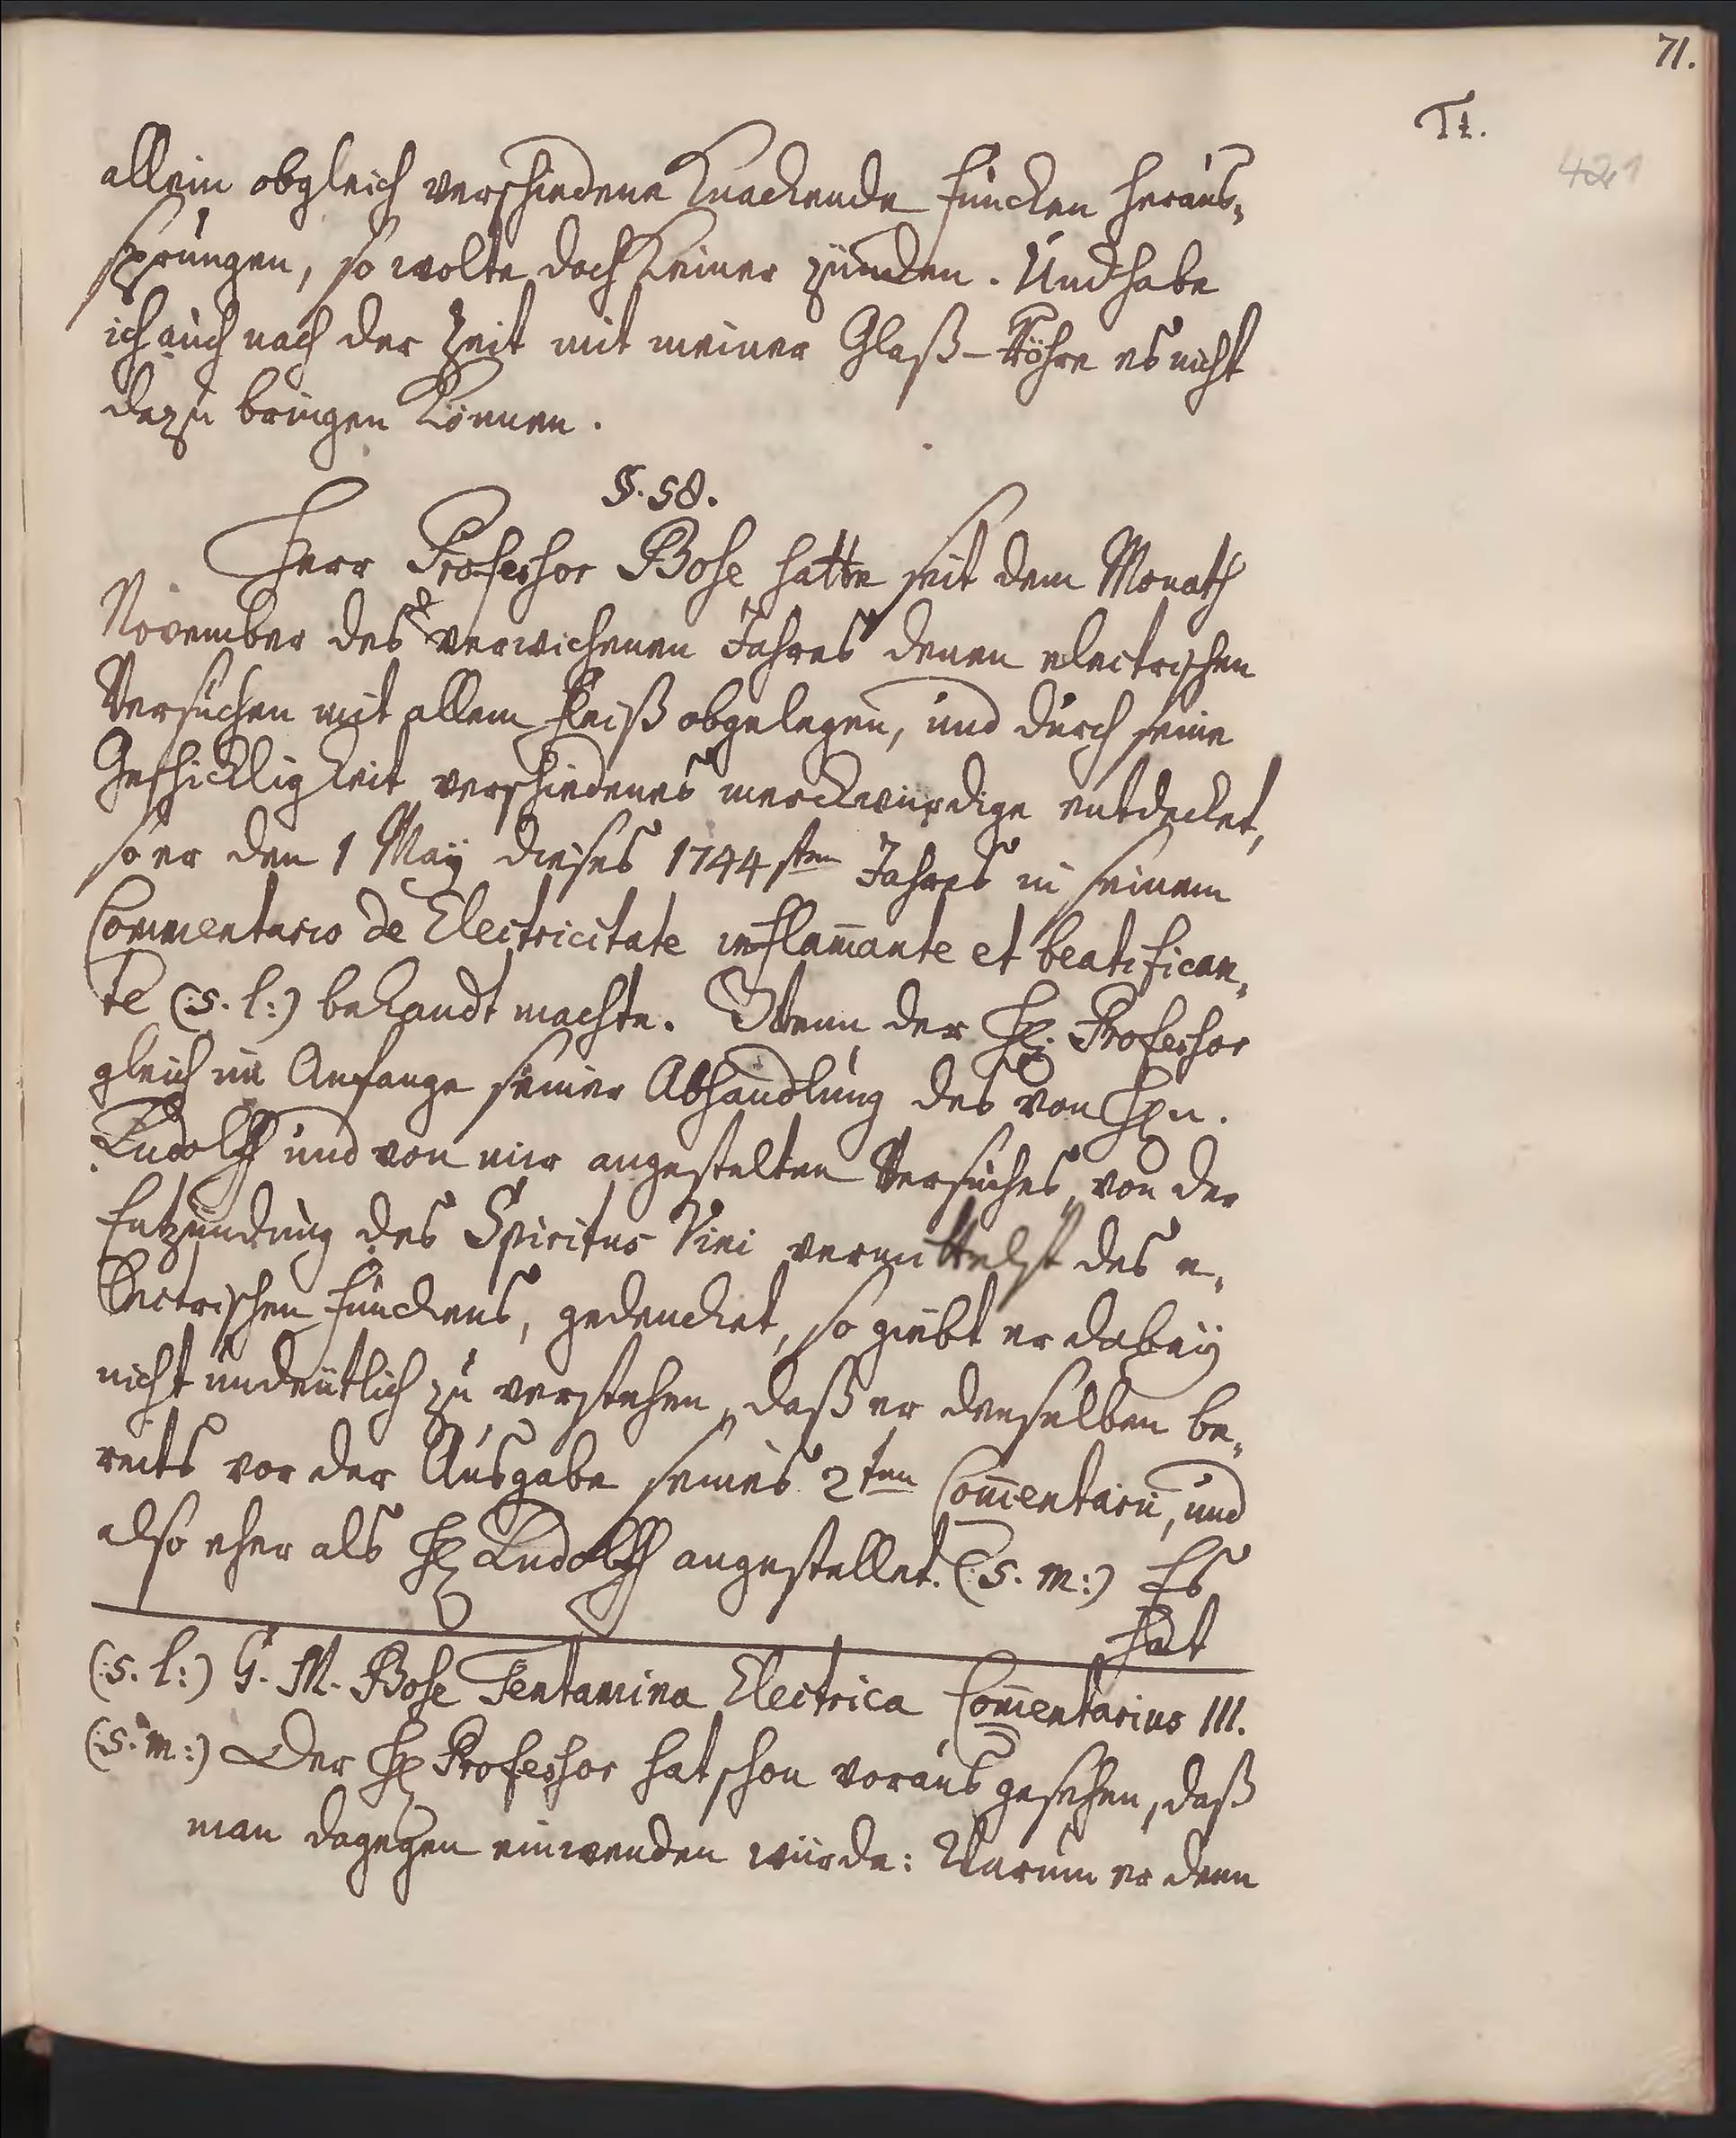 71.
Tt.
421
allein obgleich verschiedene Knackende Funcken heraus-
sprungen, so wolte doch Keiner zünden. Und habe
ich auch nach der Zeit mit meiner Glaß-Röhre es nicht
dazu bringen Können.
§. 58.
Herr Professor Bose hatte seit dem Monath
November des verwichenen Jahres denen electrischen
Versuchen mit allem Fleiß obgelegen, und durch seine
Geschickligkeit verschiedenes merckwürdige entdecket,
so er den 1 Maÿ dieses 1744sten Jahres in seinem
Commentario de Electricitate inflam̄ante et beatifican-
te (:s. l:) bekandt machte. Wenn der Hr. Professor
gleich im Anfange seiner Abhandlung des von Hrn.
Ludolff und von mir angestelten Versuches, von der
Entzündung des Spiritus Vini vermittelst des e-
lectrischen Funckens, gedencket, so giebt er dabeÿ
nicht undeutlich zu verstehen, daß er denselben be-
reits vor der Ausgabe seines 2ten Com̄entarii, und
also eher als Hr Ludolff angestellet. (:s. m:) Es
hat
(:s. l:) G. M. Bose Tentamina Electrica Com̄entarius III.
(:s. m:) Der Hr Professor hat schon voraus gesehen, daß
man dagegen einwenden würde: Warum er denn